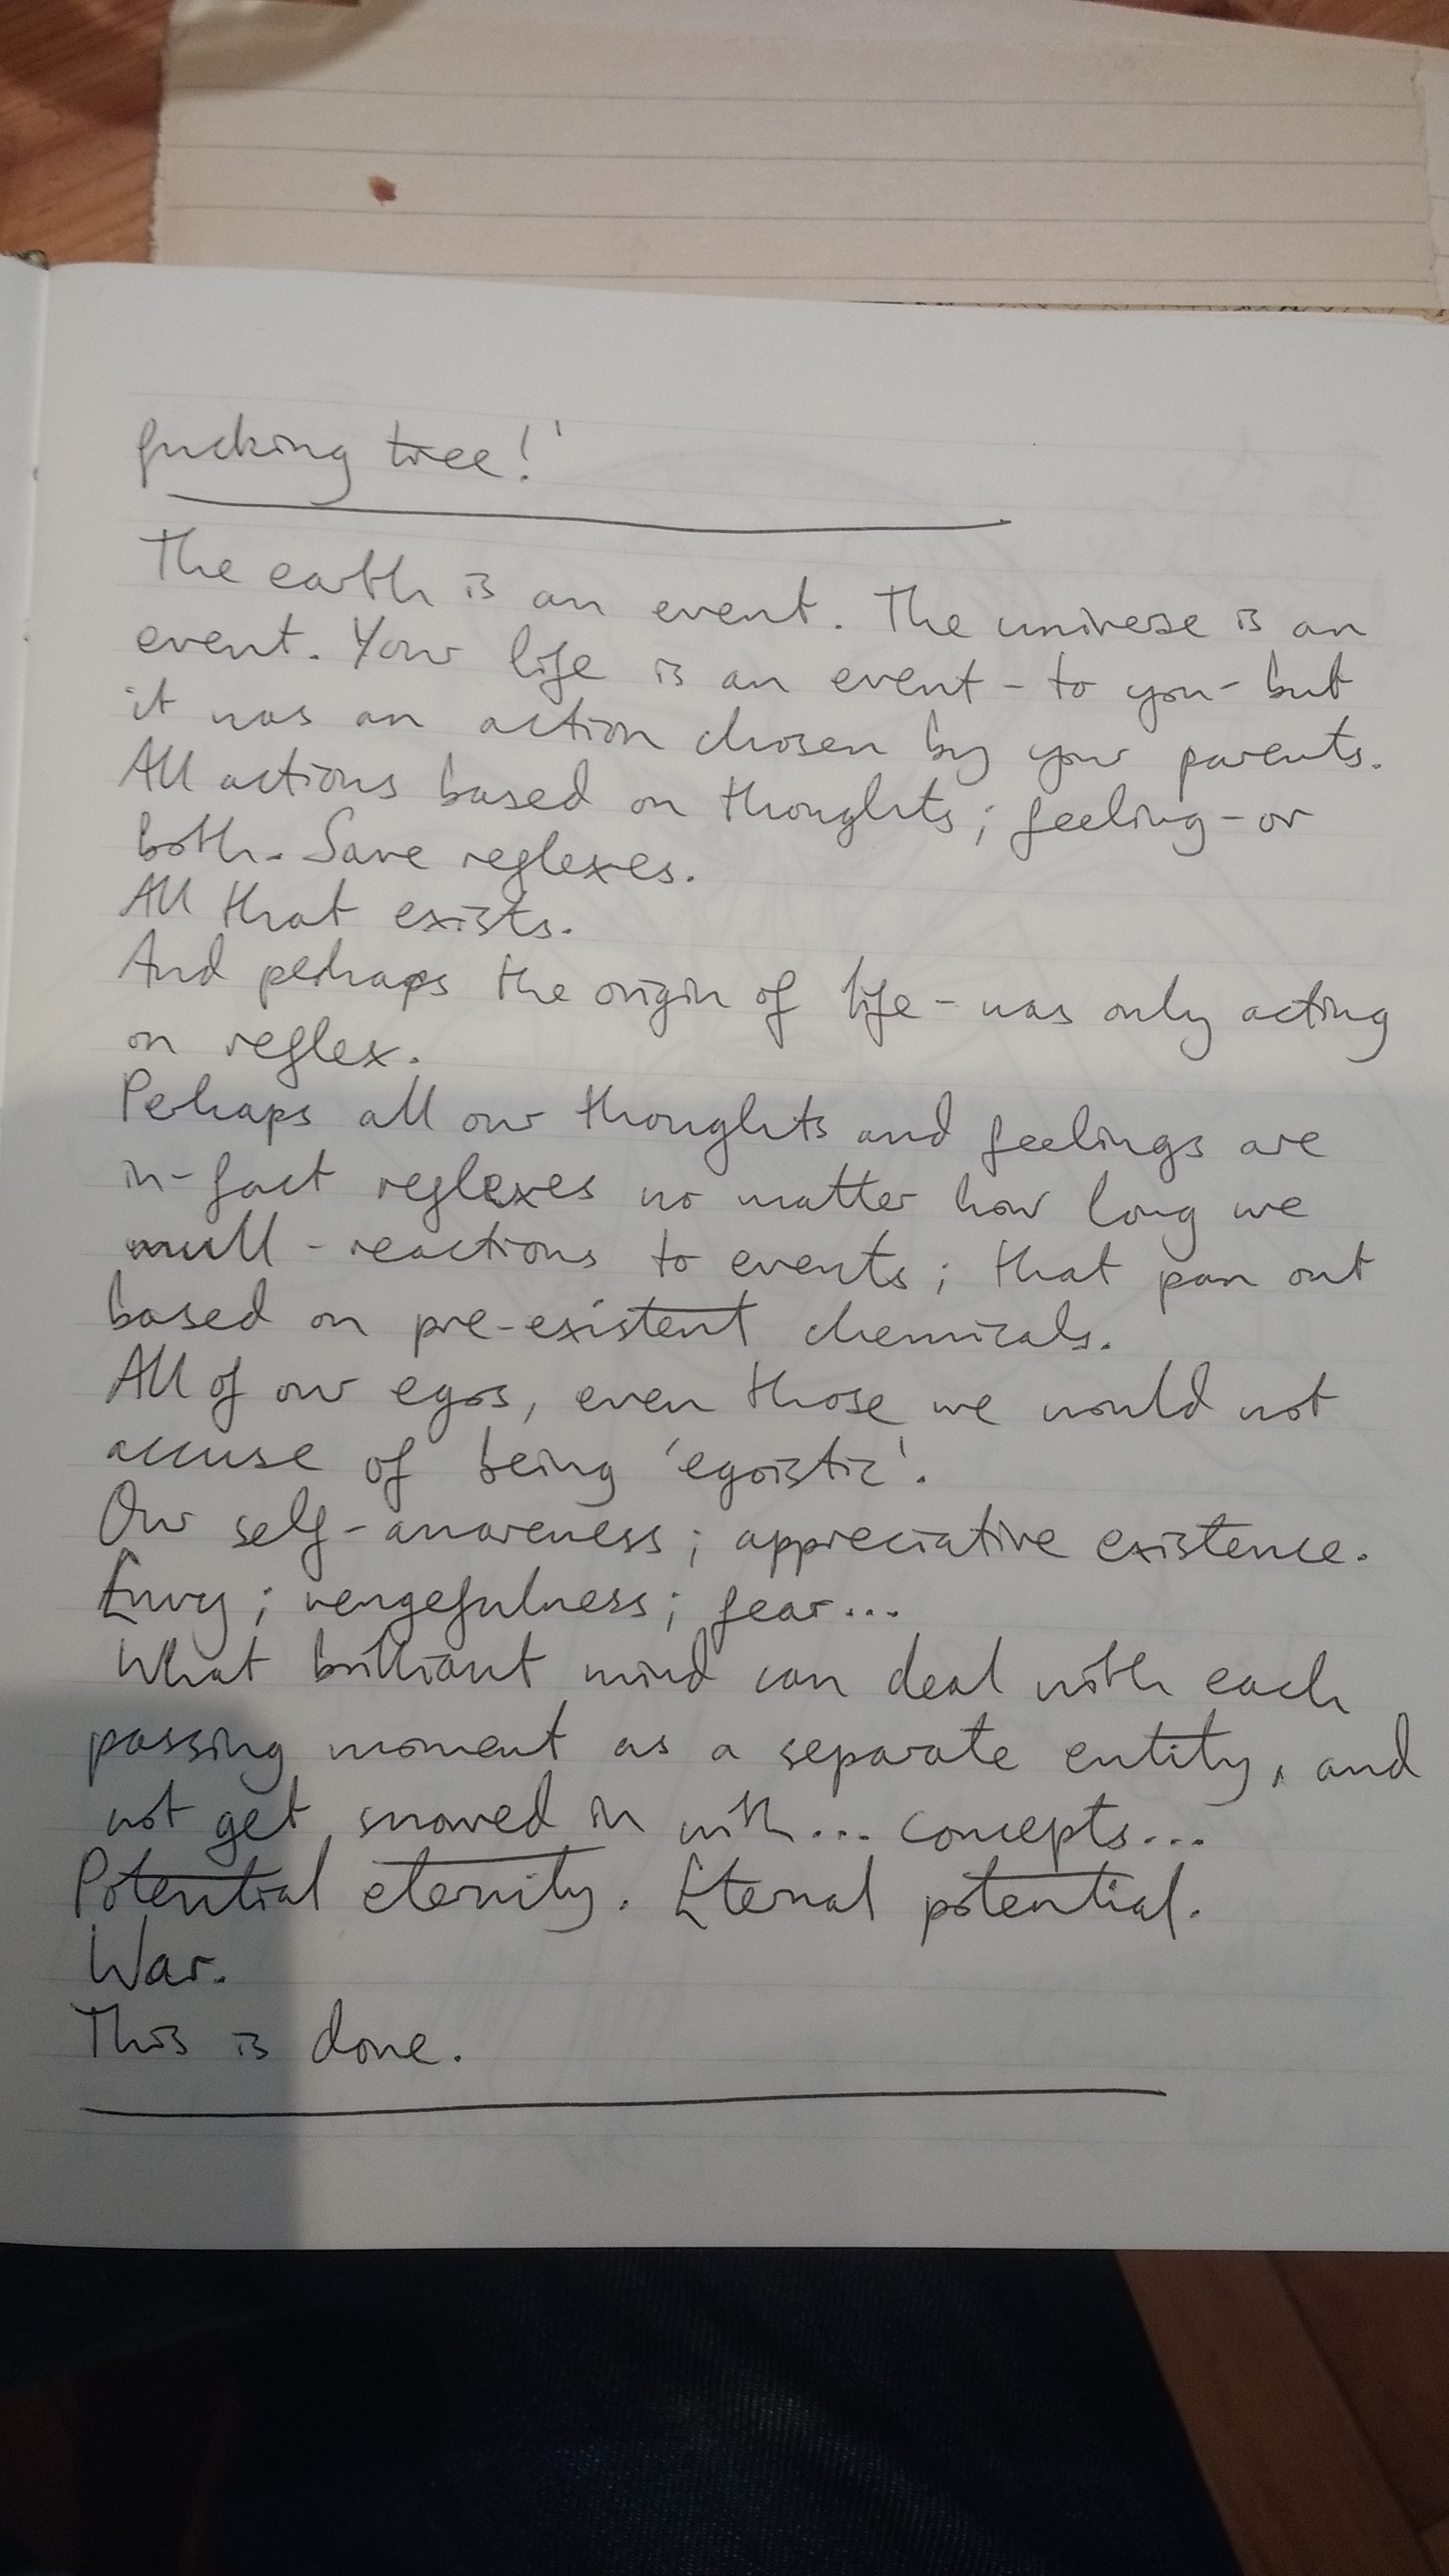 fucking tree!'
The earth is an event. The universe is an
event. Your life is an event - to you - but
it was an action chosen by your parents.
All actions based on thoughts; feeling - or
both. Save reflexes.
All that exists.
And perhaps the origin of life - was only acting
on reflex.
Perhaps all our thoughts and feelings are
in-fact reflexes no matter how long we
mull - reactions to events; that pan out
based on pre-existent chemicals.
All of our egos, even those we would not
accuse of being 'egoistic'.
Our self-awareness; appreciative existence.
Envy; vengefulness; fear...
What brilliant mind can deal with each
passing moment as a separate entity, and
not get snowed in with... concepts...
Potential eternity. Eternal potential.
War.
This is done.